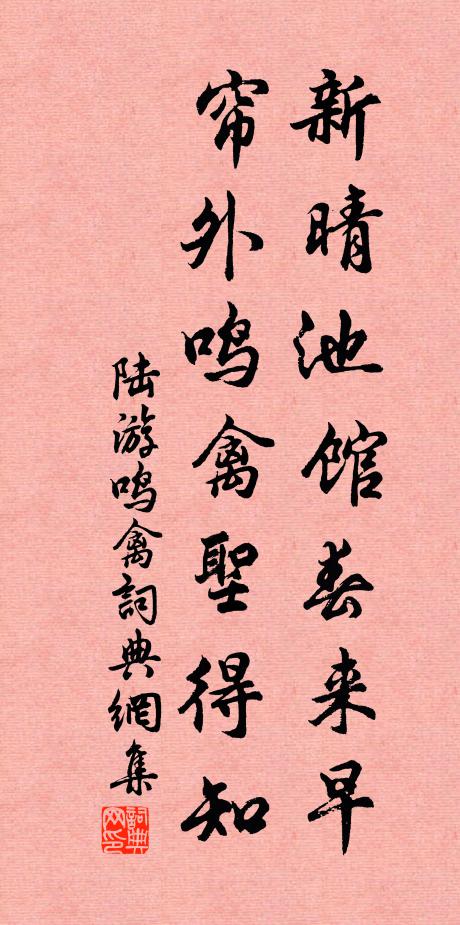 新晴池館春来早
帘外鸣禽聖得知
陆游鸣禽詞典網集
詞典网印